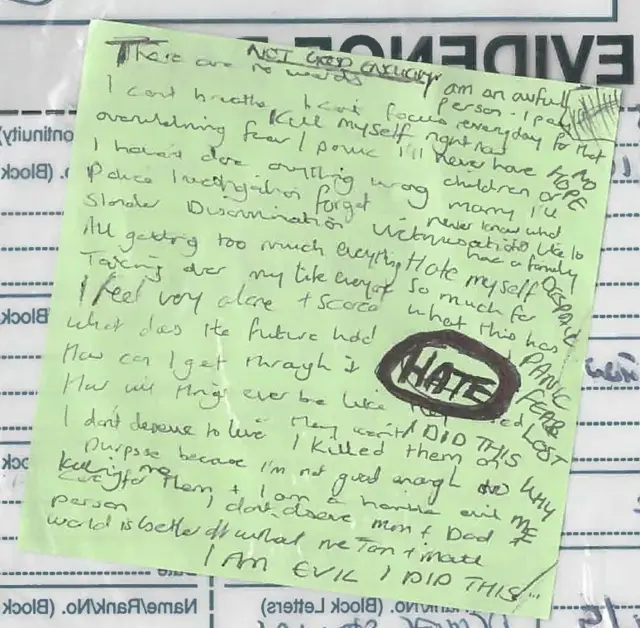 EVIDENCE
NOT GOOD ENOUGH
There are no words
I am an awful person. I pay
I can't breathe I can't focus everyday for that
overwhelming fear / panic I'll never have NO HOPE
Kill myself right now
I haven't done anything wrong children or
Police investigation forget marry I'll
Slander Discrimination never know what
Victimisation its like to
All getting too much everything have a family
Taking over my life everyday Hate myself
I feel very alone + scared so much for
what does the future hold what this has
DESPAIR
PANIC
FEAR
LOST
How can I get through it
HATE
How will things ever be like
I don't deserve to live I DID THIS
I killed them on
purpose because I'm not good enough to WHY
care for them + I am a horrible evil ME
killing me
person I don't deserve Mum + Dad +
world is better off without me
I AM EVIL I DID THIS
Name/Rank/No. (Block
(Block Letters)